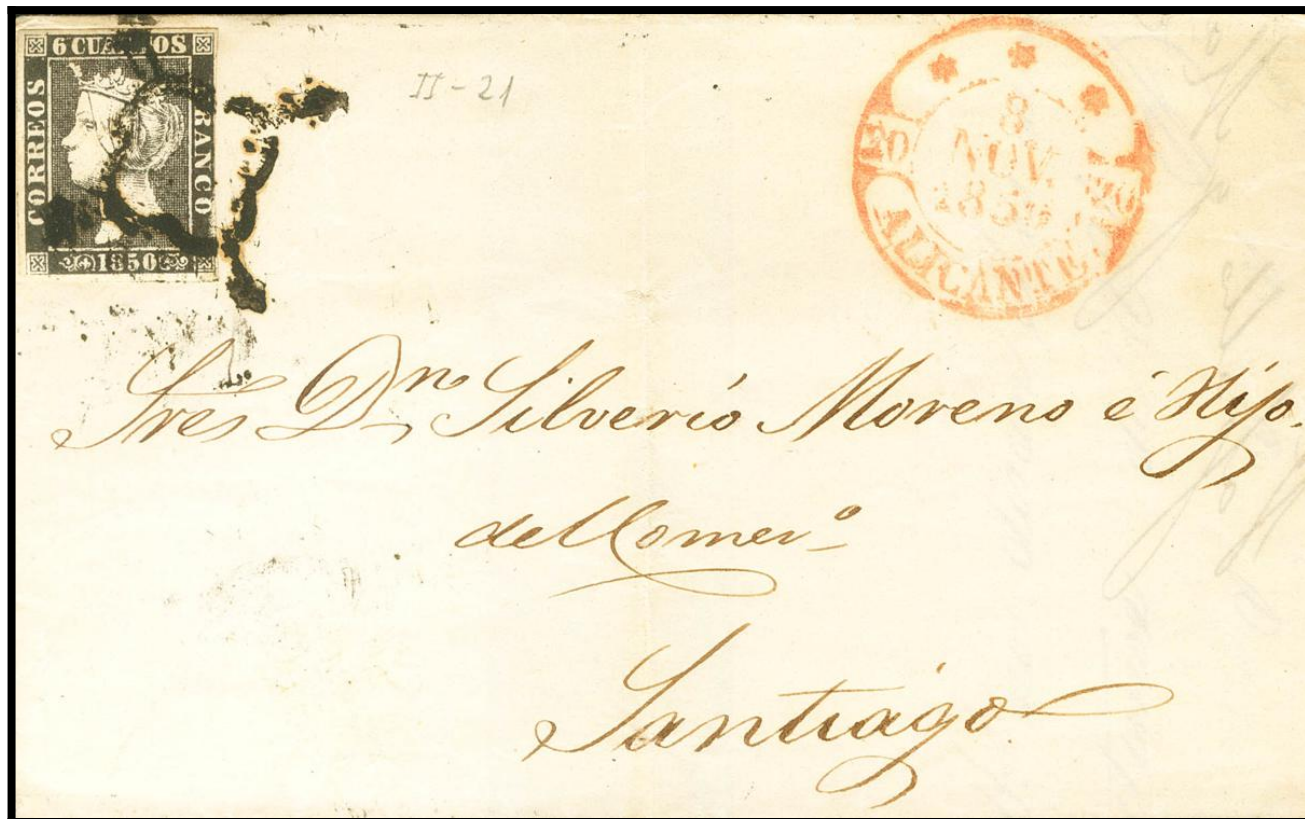 6 CUARTOS
CORREOS
FRANCO
1850
II-21
8
NOV.
1850
20 20
ALICANTE.
Sres Dn Silverio Moreno é Hijo.
del Comero
Santiágo